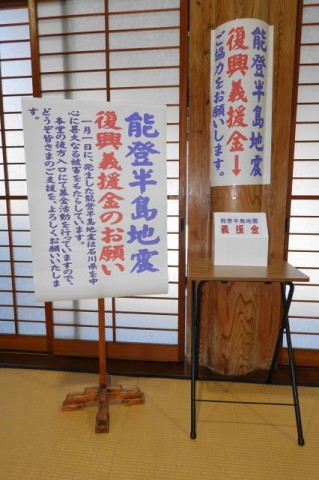 能登半島地震
復興義援金のお願い
一月一日に、発生した能登半島地震は石川県を中
心に甚大なる被害をもたらしています。
本堂の後方入口にて募金活動を行っていますので、
どうぞ皆さまのご支援を、よろしくお願いいたしま
す。
能登半島地震
復興義援金↓
ご協力をお願いします。
能登半島地震
義援金